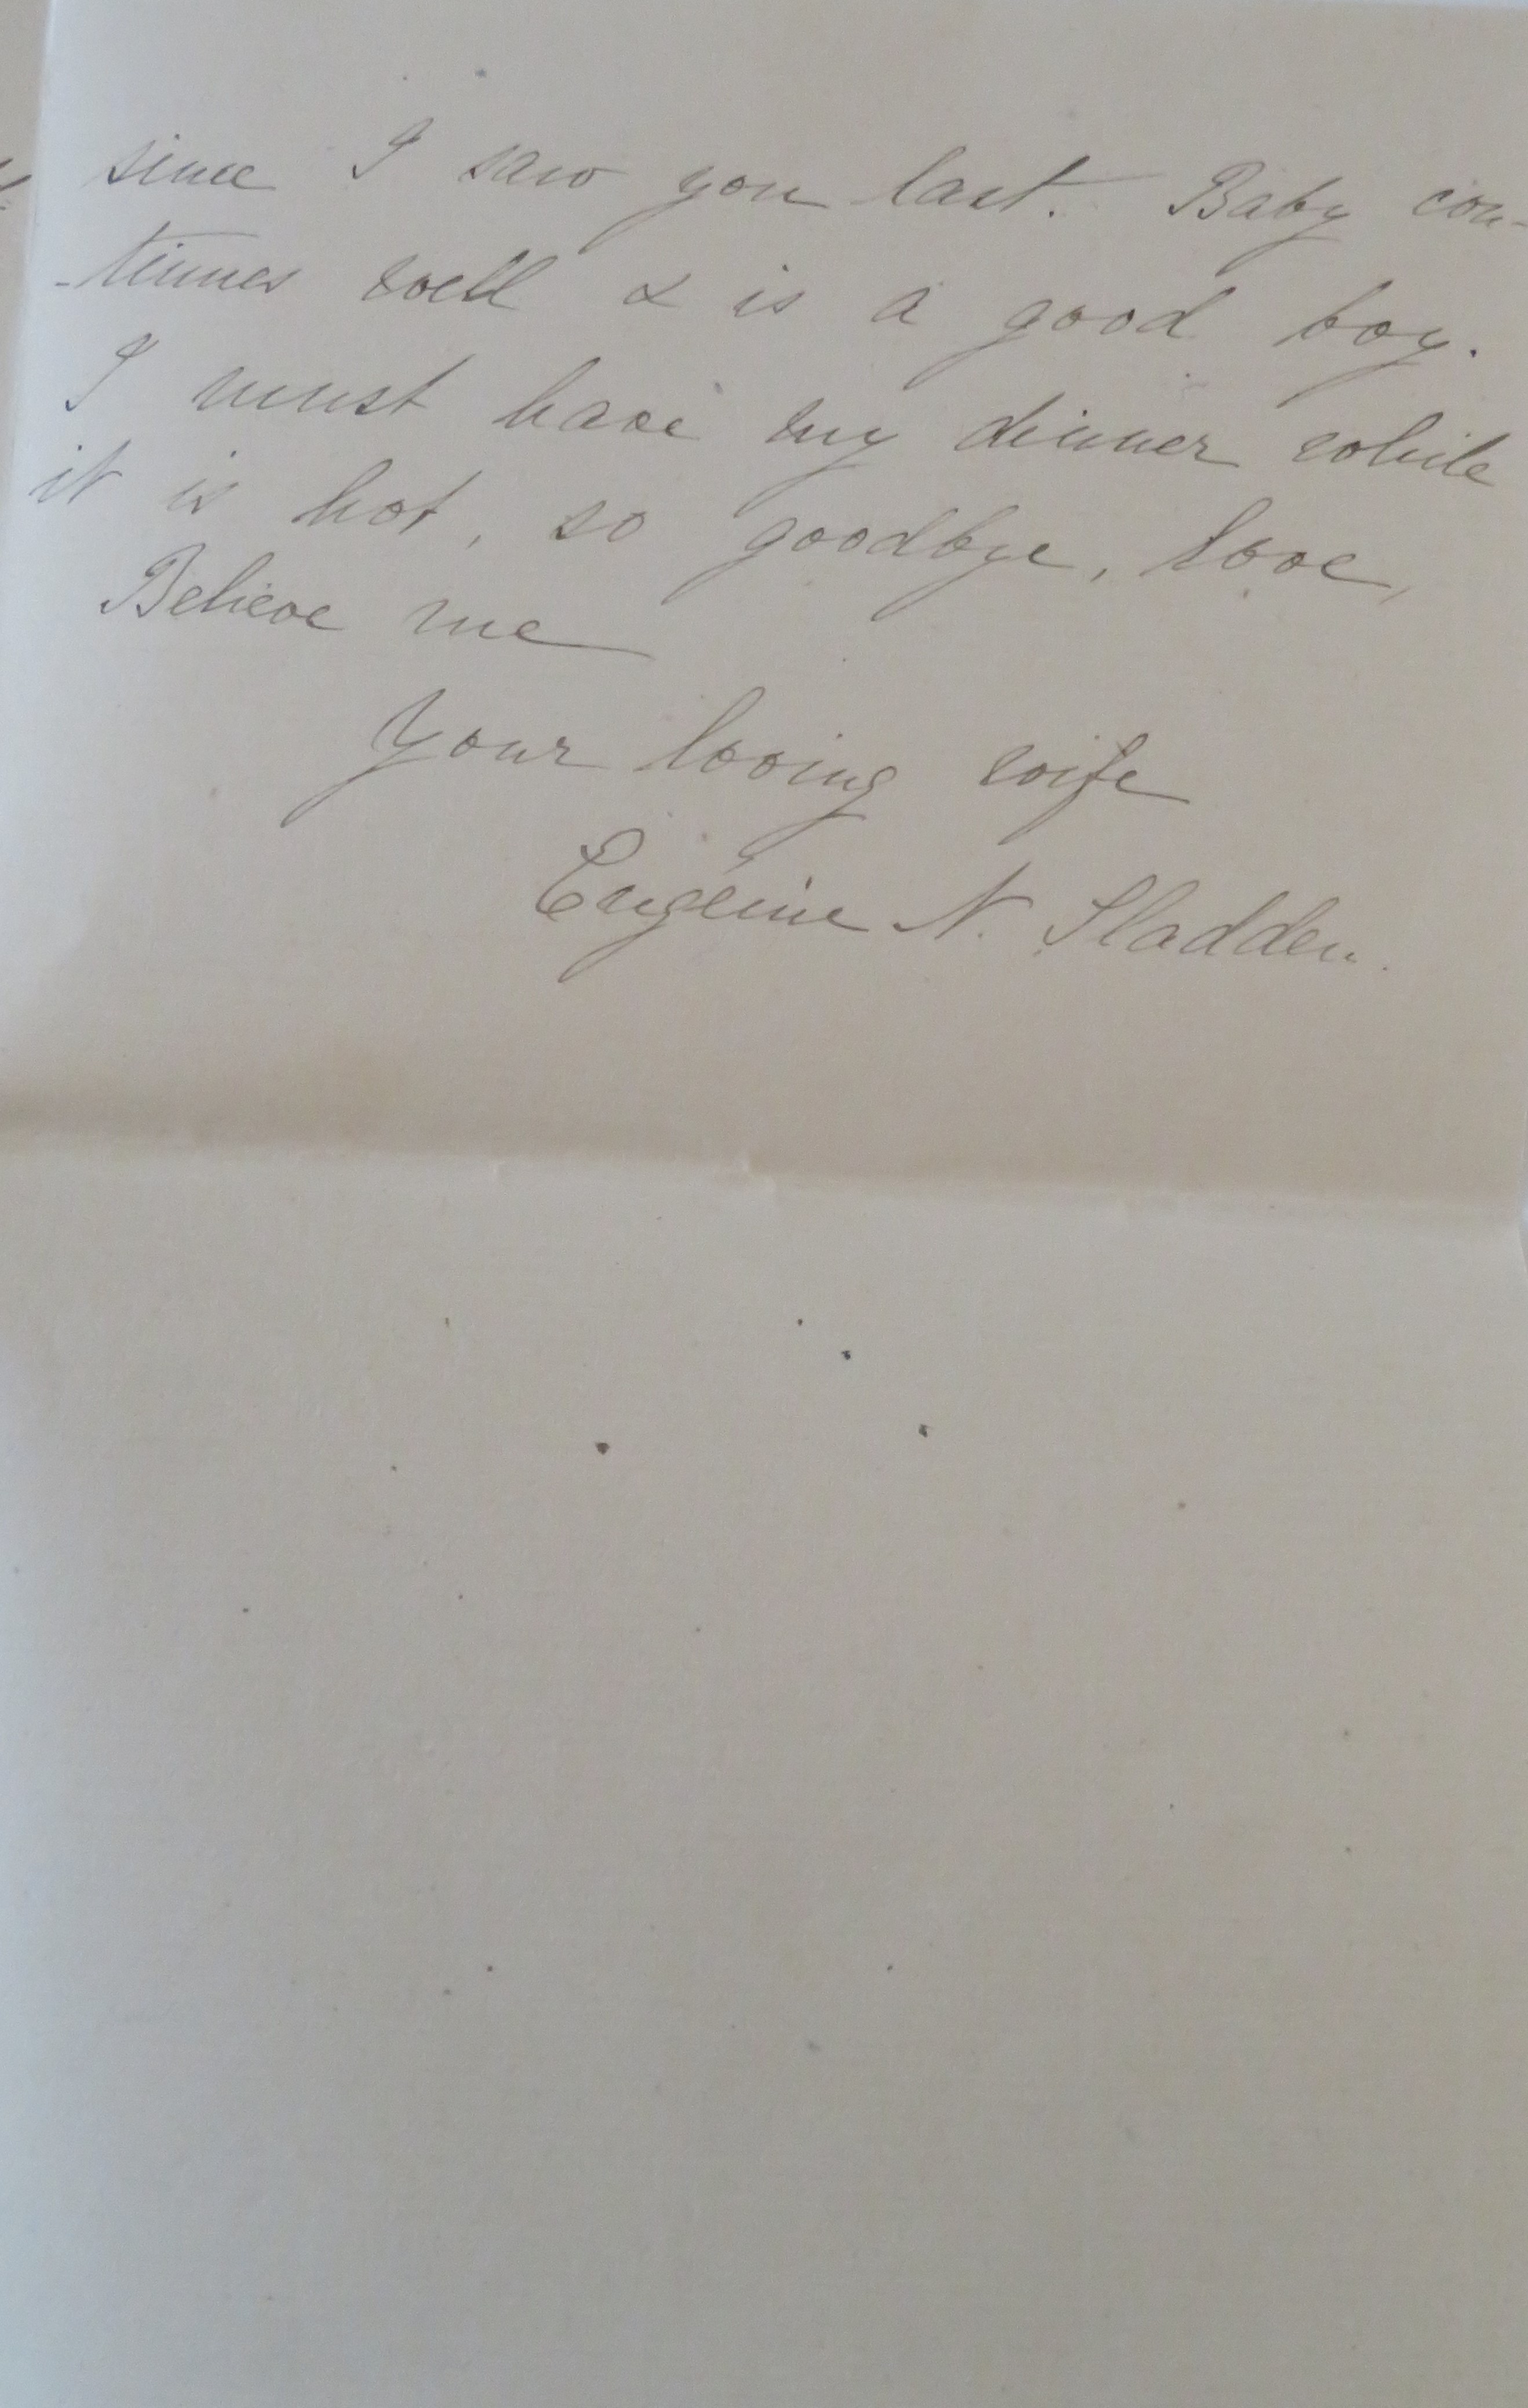 since I saw you last. Baby con-
-tinues well & is a good boy.
I must have my dinner while
it is hot, so goodbye, love,
Believe me
Your loving wife
Eugénie N. Sladden.